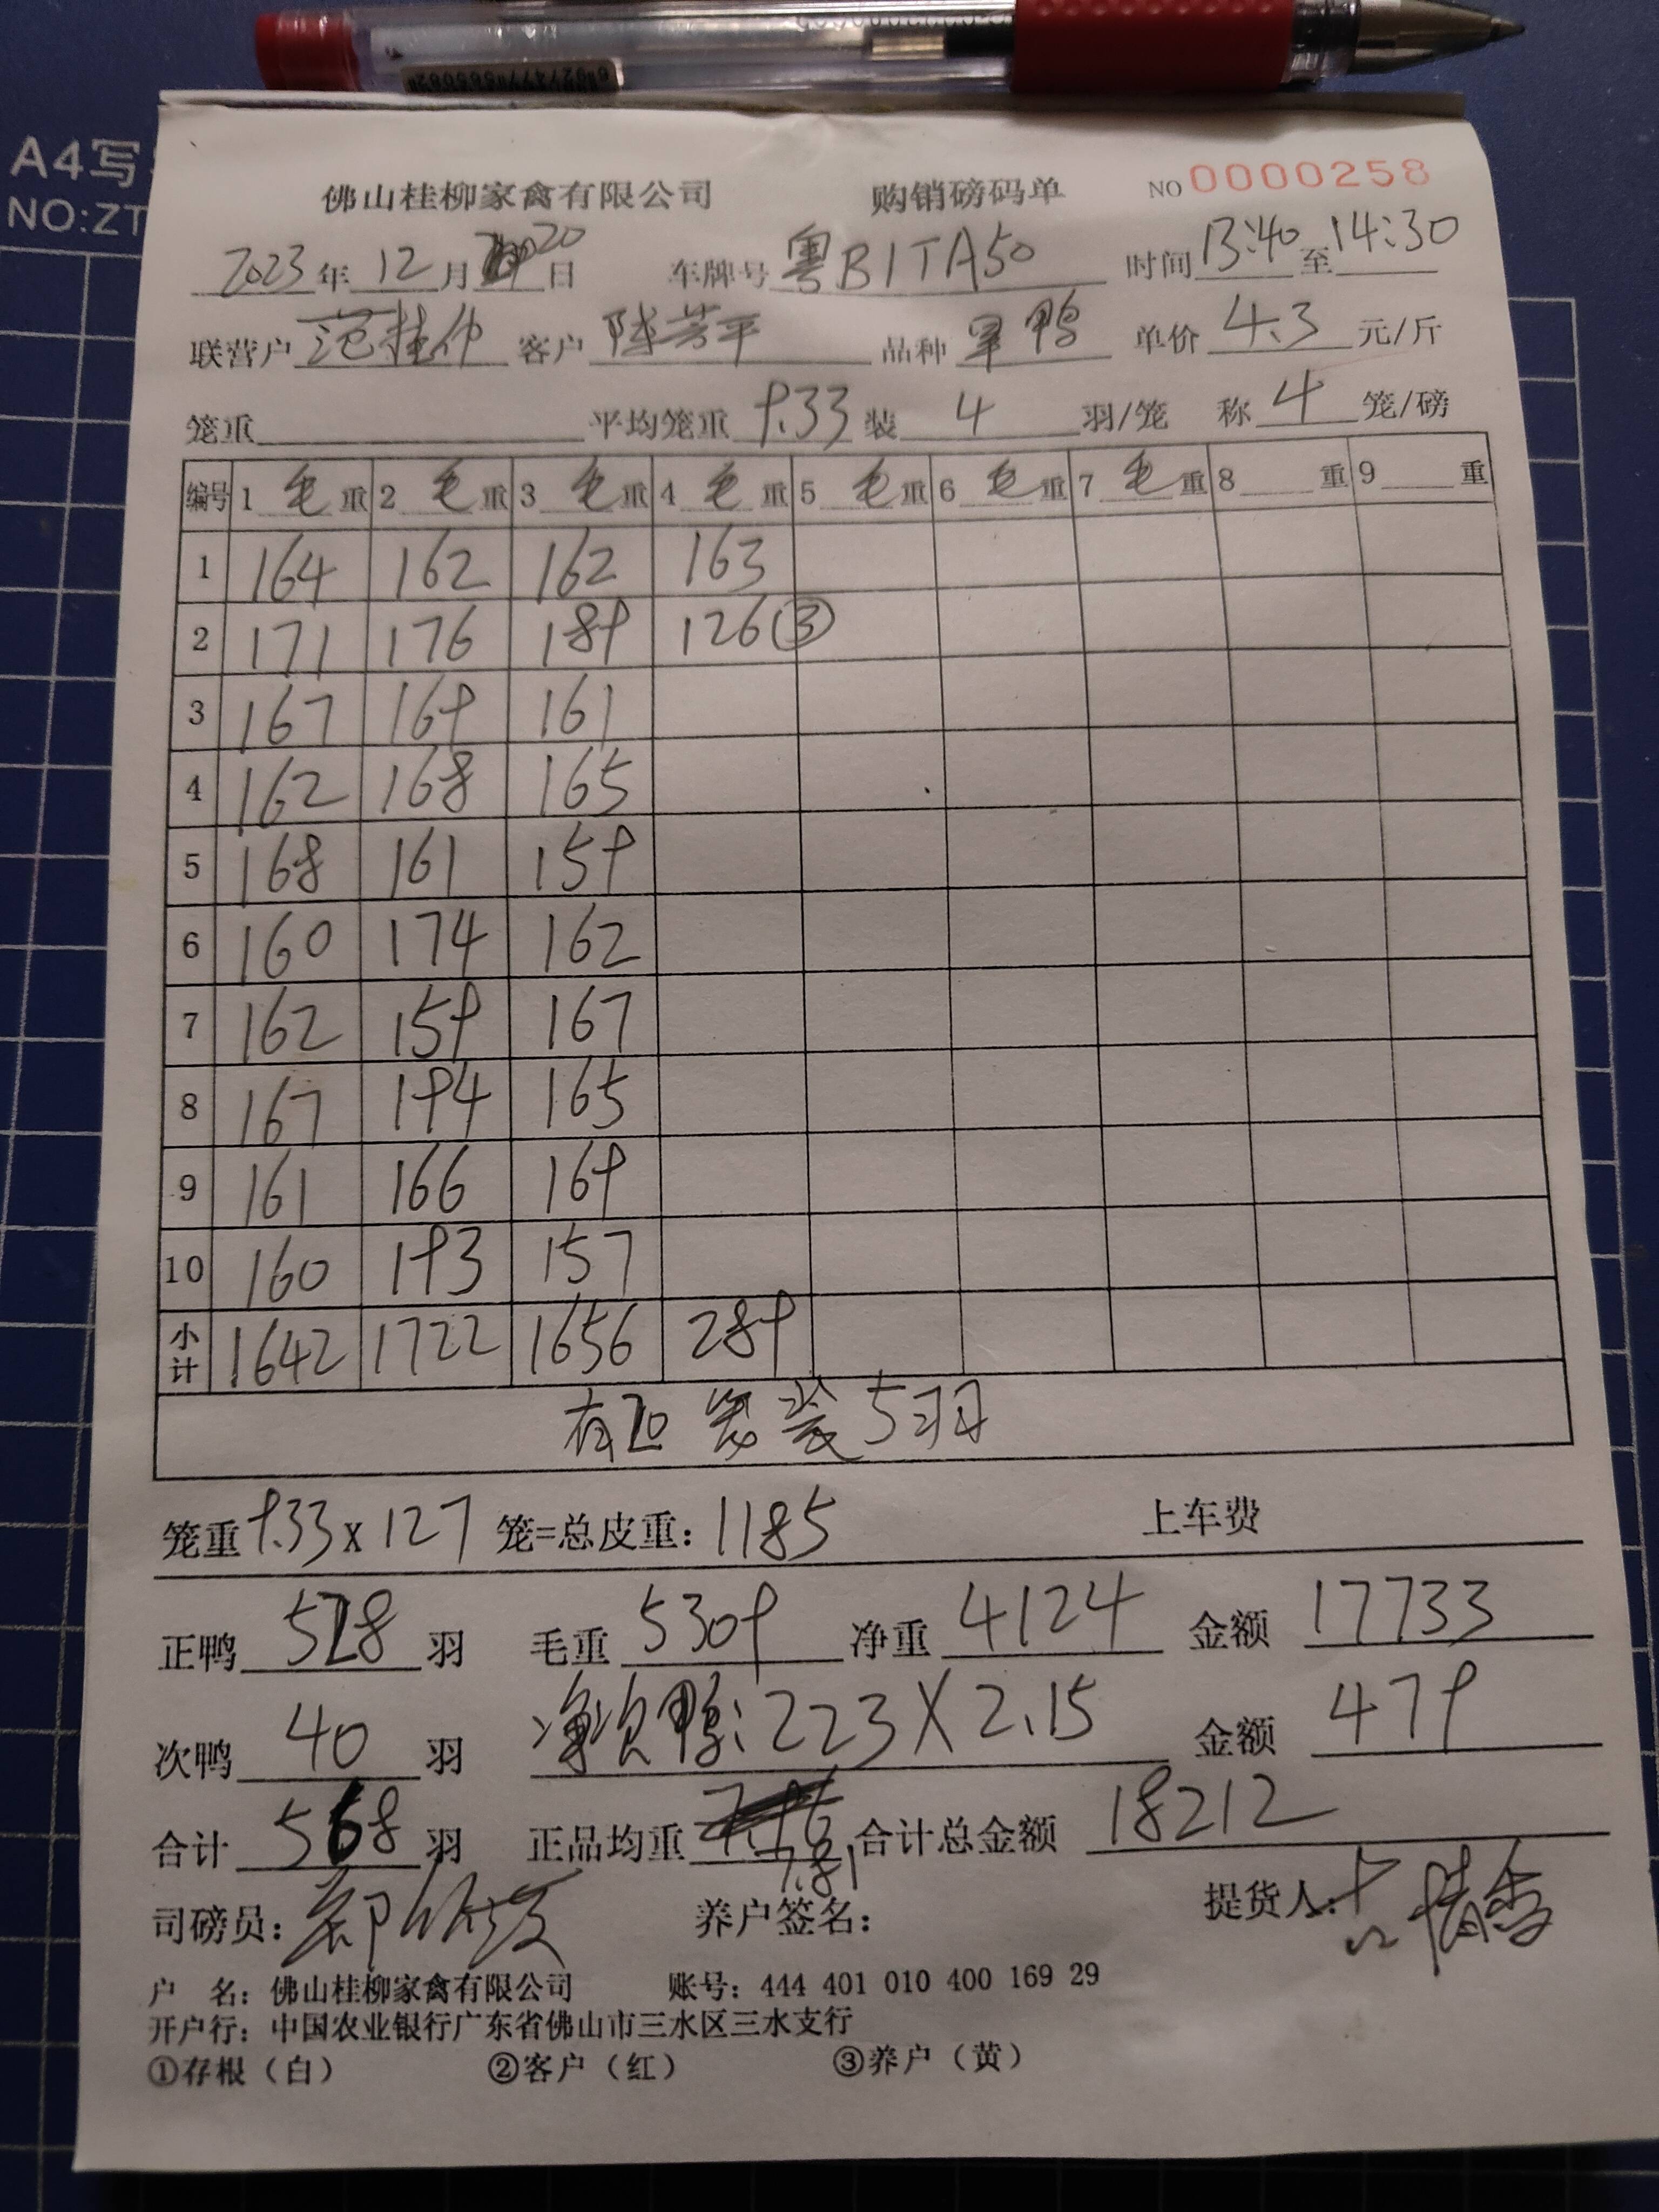 A4写
NO:ZT
佛山桂柳家禽有限公司 购销磅码单 NO 0000258
2023年12月20日 车牌号粤B1TA50 时间13:40至14:30
联营户范桂仲 客户陈芳平 品种 鸭 单价4.3元/斤
笼重 平均笼重9.33装4羽/笼 称4笼/磅
编号 1毛重 2毛重 3毛重 4毛重 5毛重 6毛重 7毛重 8重 9重
1 164 162 162 163
2 171 176 189 126③
3 167 169 161
4 162 168 165
5 168 161 159
6 160 174 162
7 162 159 167
8 167 194 165
9 161 166 169
10 160 193 157
小计 1642 1722 1656 289
有20笼装5羽
笼重9.33x127笼=总皮重:1185 上车费
正鸭528羽 毛重5309 净重4124 金额17733
次鸭40羽 净次鸭:223X2.15 金额479
合计568羽 正品均重7.81 合计总金额18212
司磅员: 养户签名: 提货人:
户 名:佛山桂柳家禽有限公司 账号:444 401 010 400 169 29
开户行:中国农业银行广东省佛山市三水区三水支行
①存根(白) ②客户(红) ③养户(黄)